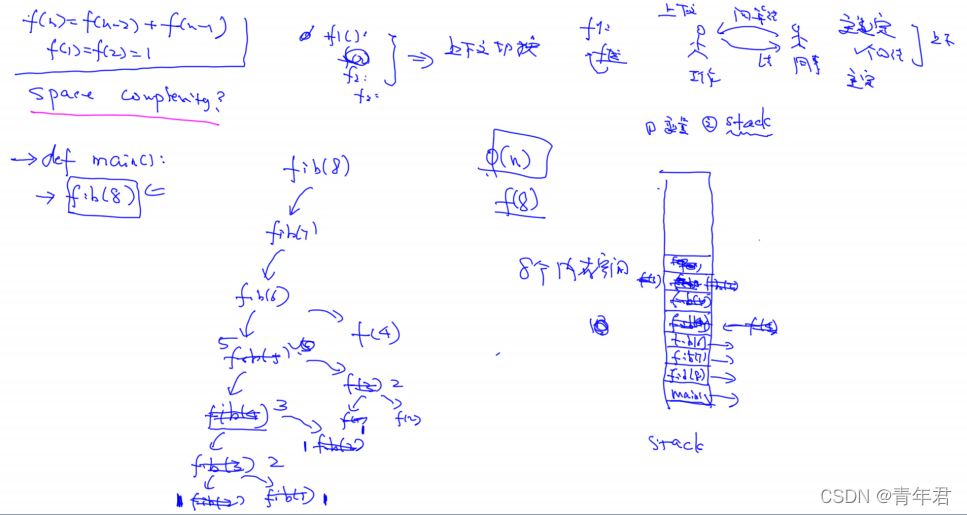 f(n)=f(n-2)+f(n-1)
f(1)=f(2)=1
space complexity?
→def main():
→ fib(8) ⇐
f1():
f2:
f2:
⇒ 上下文切换
f1:
上下文
问问题
工作
同事
主定
上下
① 变量 ② stack
fib(8)
fib(7)
fib(6)
f(4)
5 fib(5)
f(3) 2
f(2)
fib(4) 3
1 fib(2)
fib(3) 2
1 fib(2)
fib(1) 1
O(n)
f(8)
8个内存空间
fib(6)
fib(7)
fib(8)
main:
stack
CSDN @青年君